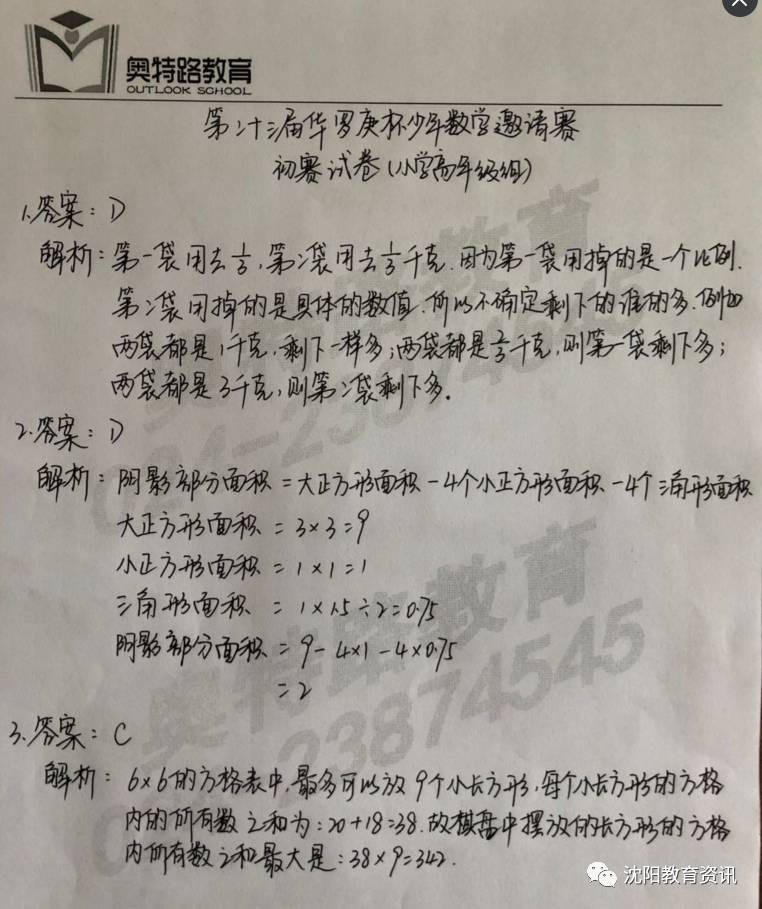 奥特路教育
OUTLOOK SCHOOL
第二十三届华罗庚杯少年数学邀请赛
初赛试卷(小学高年级组)
1.答案:D
解析:第一袋用去1/3,第二袋用去1/3千克.因为第一袋用掉的是一个比例.
第二袋用掉的是具体的数值.所以不确定剩下的谁的多.例如
两袋都是1千克,剩下一样多;两袋都是2/3千克,则第一袋剩下多;
两袋都是3千克,则第二袋剩下多.
2.答案:D
解析:阴影部分面积=大正方形面积-4个小正方形面积-4个三角形面积
大正方形面积=3×3=9
小正方形面积=1×1=1
三角形面积=1×1.5÷2=0.75
阴影部分面积=9-4×1-4×0.75
=2
3.答案:C
解析:6×6的方格表中,最多可以放9个小长方形,每个小长方形的方格
内的所有数之和为:20+18=38.故棋盘中摆放的长方形的方格
内所有数之和最大是:38×9=342.
奥特路教育
024-23874545
沈阳教育资讯